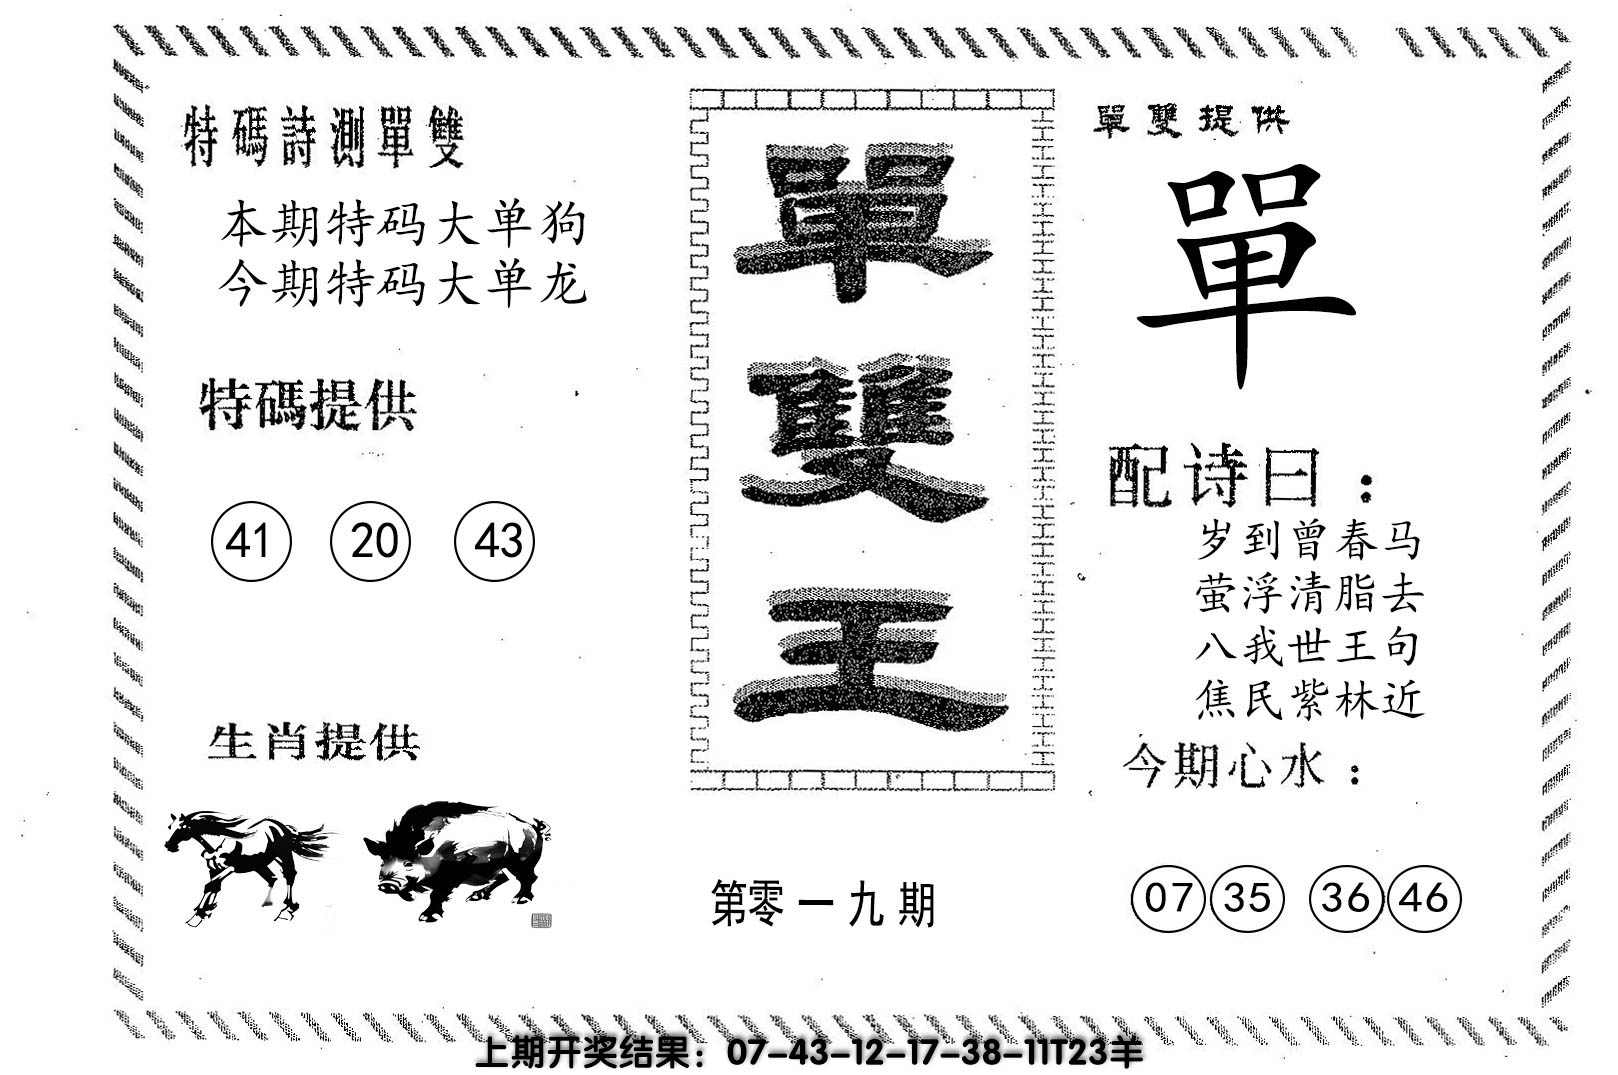 特碼詩測單雙
本期特码大单狗
今期特码大单龙
特碼提供
41 20 43
生肖提供
單
雙
王
第零一九期
單雙提供
單
配诗曰：
岁到曾春马
萤浮清脂去
八我世王句
焦民紫林近
今期心水：
07 35 36 46
上期开奖结果：07-43-12-17-38-11T23羊